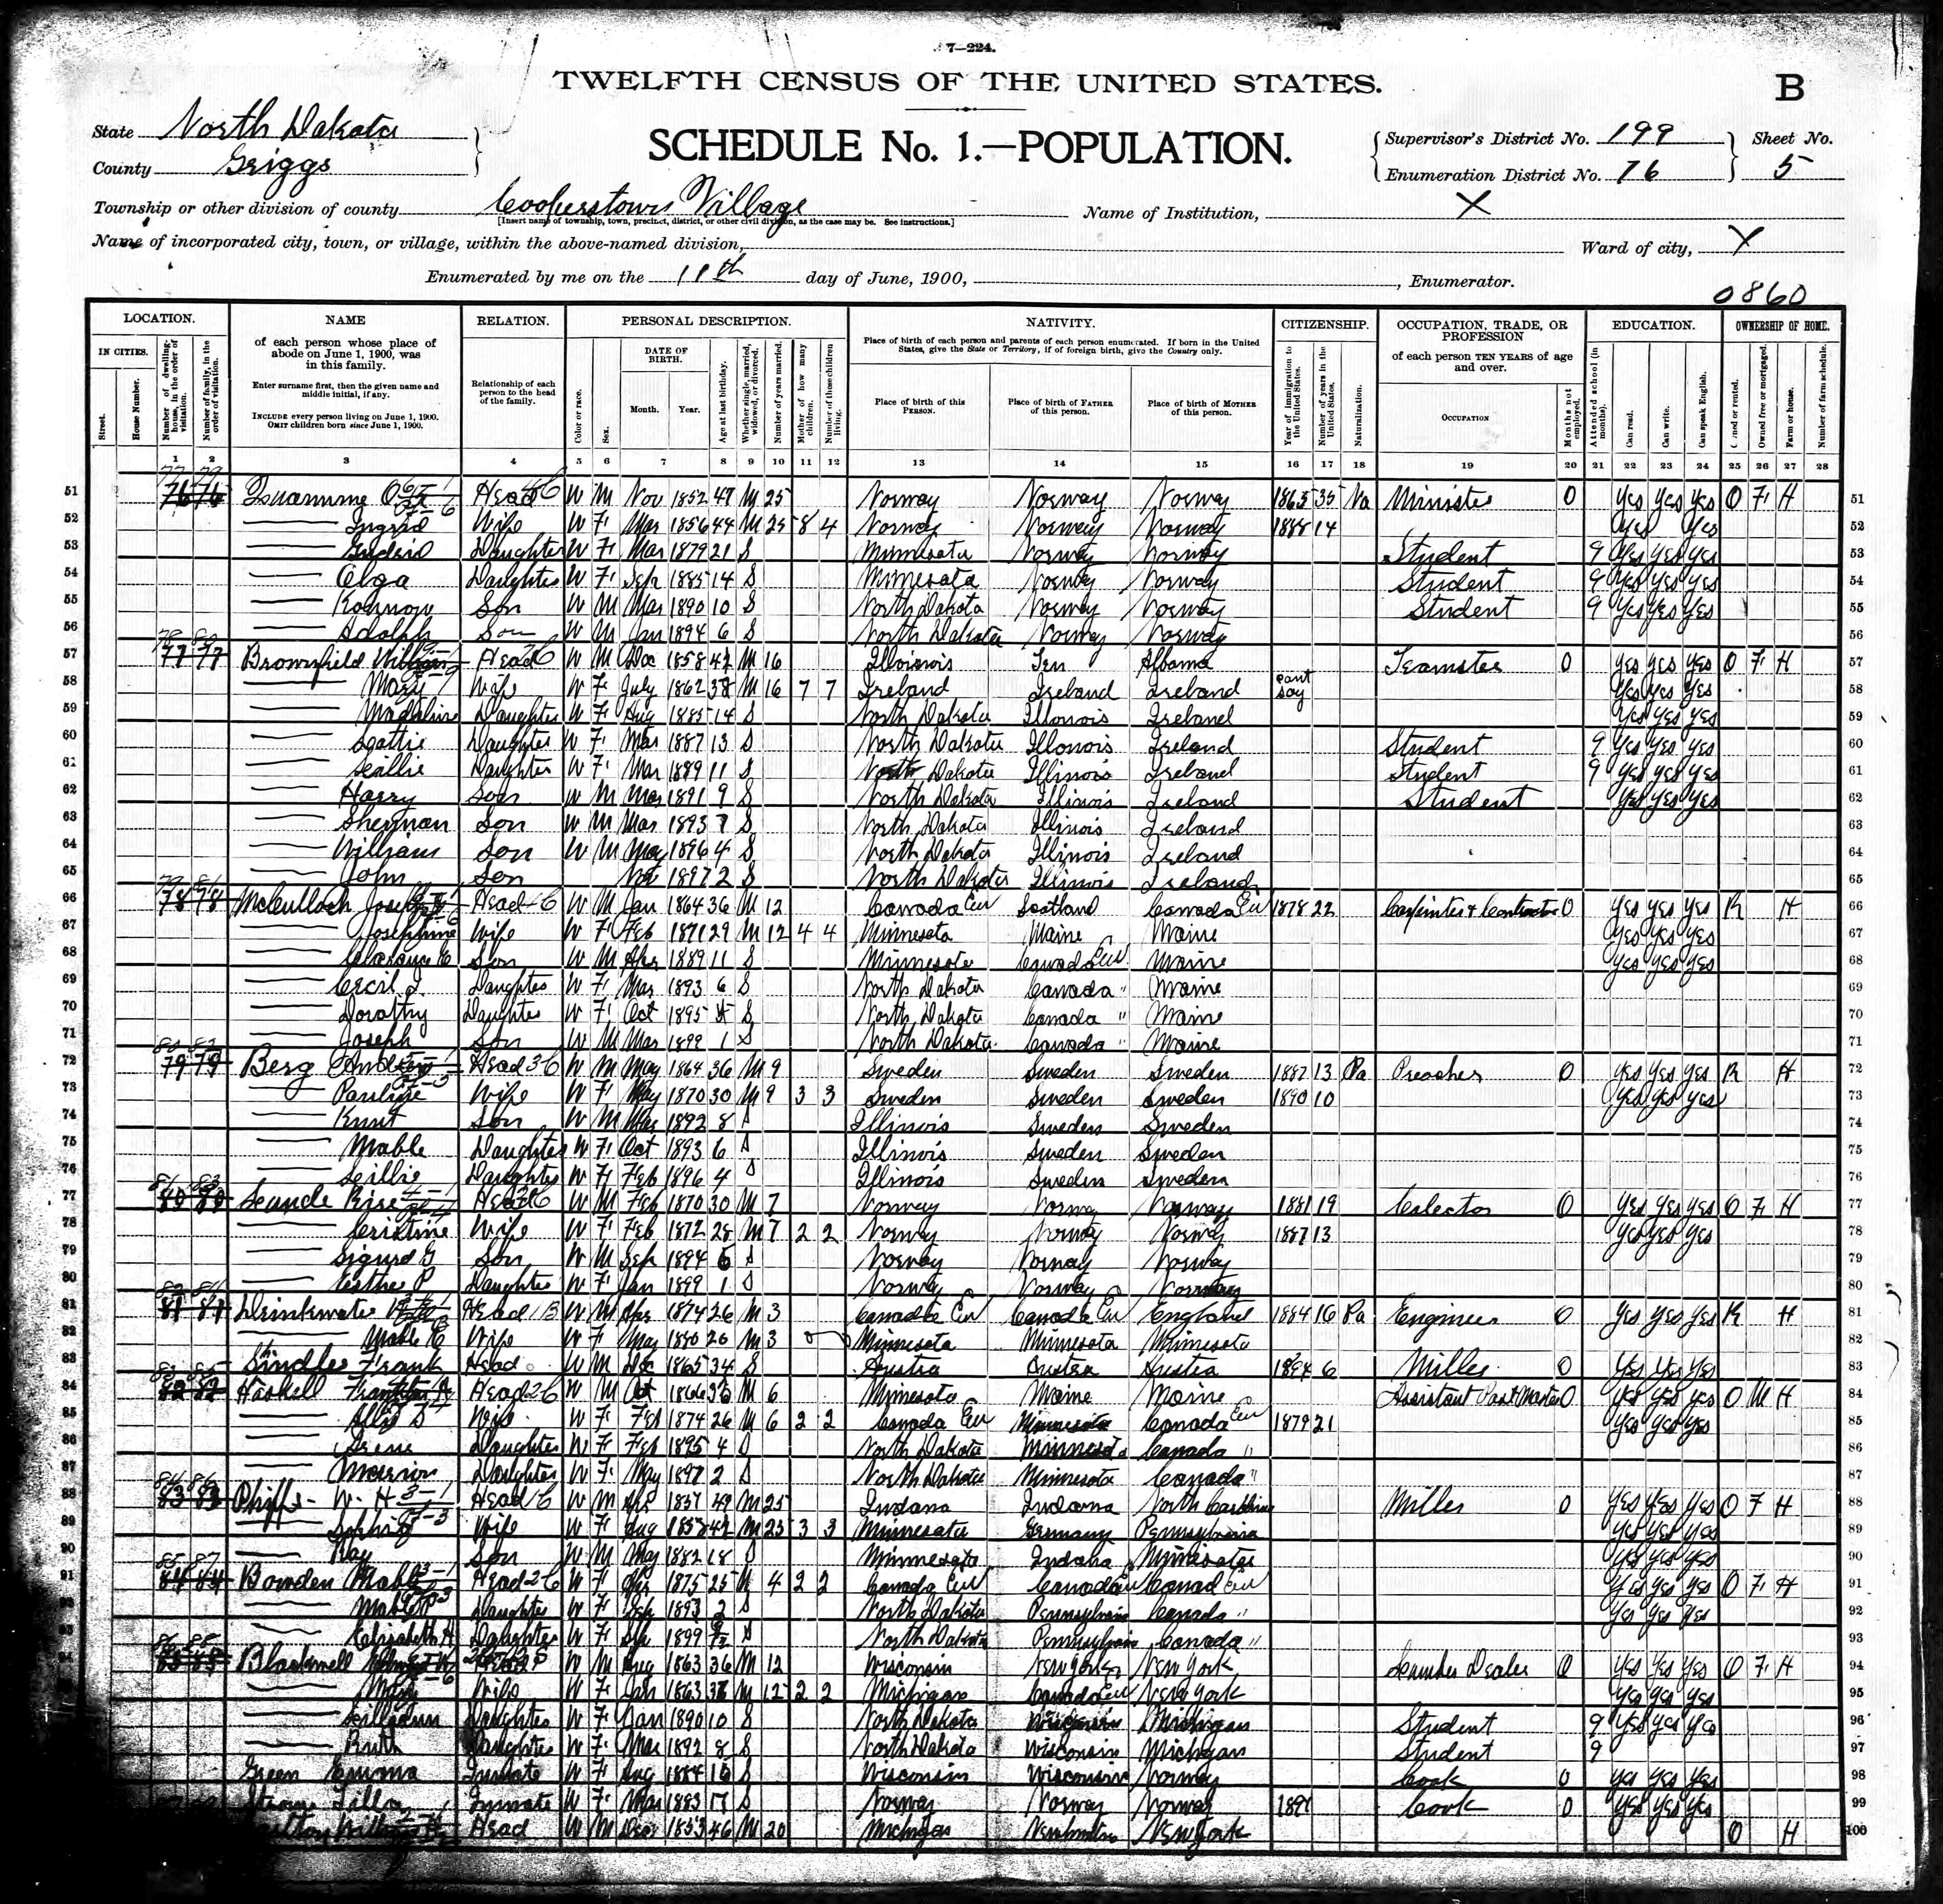 7—224.
TWELFTH CENSUS OF THE UNITED STATES.
B
State North Dakota
County Griggs
SCHEDULE No. 1.—POPULATION.
Supervisor's District No. 199
Enumeration District No. 76
Sheet No. 5
Township or other division of county Cooperstown Village
[Insert name of township, town, precinct, district, or other civil division, as the case may be. See instructions.]
Name of Institution, X
Name of incorporated city, town, or village, within the above-named division,
Ward of city, X
Enumerated by me on the 11th day of June, 1900, , Enumerator.
0860
LOCATION. NAME RELATION. PERSONAL DESCRIPTION. NATIVITY. CITIZENSHIP. OCCUPATION, TRADE, OR PROFESSION EDUCATION. OWNERSHIP OF HOME.
IN CITIES. Street. House Number. Number of dwelling-house, in the order of visitation. Number of family, in the order of visitation.
of each person whose place of abode on June 1, 1900, was in this family.
Enter surname first, then the given name and middle initial, if any.
INCLUDE every person living on June 1, 1900. OMIT children born since June 1, 1900.
Relationship of each person to the head of the family.
Color or race. Sex. DATE OF BIRTH. Month. Year. Age at last birthday. Whether single, married, widowed, or divorced. Number of years married. Mother of how many children. Number of these children living.
Place of birth of each person and parents of each person enumerated. If born in the United States, give the State or Territory, if of foreign birth, give the Country only.
Place of birth of this PERSON. Place of birth of FATHER of this person. Place of birth of MOTHER of this person.
Year of immigration to the United States. Number of years in the United States. Naturalization.
of each person TEN YEARS of age and over.
OCCUPATION Months not employed. Attended school (in months). Can read. Can write. Can speak English. Owned or rented. Owned free or mortgaged. Farm or house. Number of farm schedule.
1 2 3 4 5 6 7 8 9 10 11 12 13 14 15 16 17 18 19 20 21 22 23 24 25 26 27 28
51 76 76 Head W M Nov 1852 47 M 25 Norway Norway Norway 1865 35 Na Minister 0 yes yes yes O F H 51
52 Ingrid Wife W F Mar 1856 44 M 25 8 4 Norway Norway Norway 1888 14 yes yes 52
53 Daughter W F Mar 1879 21 S Minnesota Norway Norway Student 9 yes yes yes 53
54 Olga Daughter W F Sep 1885 14 S Minnesota Norway Norway Student 9 yes yes yes 54
55 Son W M Mar 1890 10 S North Dakota Norway Norway Student 9 yes yes yes 55
56 Adolph Son W M Jan 1894 6 S North Dakota Norway Norway 56
57 77 77 Brownfield William Head W M Dec 1858 M 16 Illinois Ten Albama Teamster 0 yes yes yes O F H 57
58 Mary Wife W F July 1862 M 16 7 7 Ireland Ireland Ireland cant say yes yes yes 58
59 Madaline Daughter W F Aug 1885 14 S North Dakota Illonois Ireland yes yes yes 59
60 Daughter W F Mar 1887 13 S North Dakota Illonois Ireland Student 9 yes yes yes 60
61 Lillie Daughter W F Mar 1889 11 S North Dakota Illinois Ireland Student 9 yes yes yes 61
62 Harry Son W M Mar 1891 9 S North Dakota Illinois Ireland Student yes yes yes 62
63 Sherman Son W M Mar 1893 7 S North Dakota Illinois Ireland 63
64 William Son W M May 1896 4 S North Dakota Illinois Ireland 64
65 John Son Nov 1897 2 S North Dakota Illinois Ireland 65
66 78 78 McCulloch Joseph Head W M Jan 1864 36 M 12 Canada Eng Scotland Canada Eng 1878 22 Carpenter & Contractor 0 yes yes yes R H 66
67 Josephine Wife W F Feb 1871 29 M 12 4 4 Minnesota Maine Maine yes yes yes 67
68 Clarance E Son W M Apr 1889 11 S Minnesota Canada Eng Maine yes yes yes 68
69 Cecil I Daughter W F Mar 1893 6 S North Dakota Canada " Maine 69
70 Dorothy Daughter W F Oct 1895 4 S North Dakota Canada " Maine 70
71 Joseph Son W M Mar 1899 1 S North Dakota Canada " Maine 71
72 79 79 Berg Andrew Head W M May 1864 36 M 9 Sweden Sweden Sweden 1887 13 Pa Preacher 0 yes yes yes R H 72
73 Pauline Wife W F May 1870 30 M 9 3 3 Sweden Sweden Sweden 1890 10 yes yes yes 73
74 Knut Son W M May 1892 8 S Illinois Sweden Sweden 74
75 Mable Daughter W F Oct 1893 6 S Illinois Sweden Sweden 75
76 Lillie Daughter W F Feb 1896 4 S Illinois Sweden Sweden 76
77 80 80 Head W M Feb 1870 30 M 7 Norway Norway Norway 1881 19 Colector 0 yes yes yes O F H 77
78 Cristine Wife W F Feb 1872 28 M 7 2 2 Norway Norway Norway 1887 13 yes yes yes 78
79 Sigurd G Son W M Sep 1894 5 S Norway Norway Norway 79
80 Esther P Daughter W F Jan 1899 1 S Norway Norway Norway 80
81 81 81 Drinkwater Head W M Apr 1874 26 M 3 Canada Eng Canada Eng England 1884 16 Pa Engineer 0 yes yes yes R H 81
82 Mable E Wife W F May 1880 20 M 3 0 Minnesota Minnesota Minnesota 82
83 Sindler Frank Head W M Dec 1865 34 S Austria Austria Austria 1894 6 Miller 0 yes yes yes 83
84 82 82 Haskell Franklin Head W M Oct M 6 Minnesota Maine Maine Assistant Post Master 0 yes yes yes O M H 84
85 Allie Wife W F Feb 1874 26 M 6 2 2 Canada Eng Minnesota Canada Eng 1879 21 yes yes yes 85
86 Irene Daughter W F Feb 1895 4 S North Dakota Minnesota Canada " 86
87 Marion Daughter W F May 1897 2 S North Dakota Minnesota Canada " 87
88 83 83 Phipps W. H Head W M Apr 1851 49 M 25 Indiana Indiana North Carolina Miller 0 yes yes yes O F H 88
89 Sophia Wife W F Aug 1858 M 25 3 3 Minnesota Germany Pennsylvania yes yes yes 89
90 Ray Son W M May 1882 18 S Minnesota Indiana Minnesota yes yes yes 90
91 84 84 Bowden Mable Head W F Apr 1875 25 4 2 2 Canada Eng Canada Eng Canad Eng yes yes yes O F H 91
92 Mable Daughter W F Feb 1893 2 S North Dakota Pennsylvania Canada " yes yes yes 92
93 Elizabeth H Daughter W F 1899 S North Dakota Pennsylvania Canada " 93
94 85 85 Blackwell Head W M Aug 1863 36 M 12 Wisconsin New York New York Lumber Dealer 0 yes yes yes O F H 94
95 Mary Wife W F Jan 1863 M 12 2 2 Michigan Canada Eng New York yes yes yes 95
96 Lilliann Daughter W F Jan 1890 10 S North Dakota Wisconsin Michigan Student 9 yes yes yes 96
97 Ruth Daughter W F Mar 1892 8 S North Dakota Wisconsin Michigan Student 9 97
98 Green Emma Inmate W F Aug 1884 S Wisconsin Wisconsin Norway Cook 0 yes yes yes 98
99 Inmate W F Mar 1883 17 S Norway Norway Norway 1891 Cook 0 yes yes yes 99
Head W M Dec 1853 46 M 20 Michigan New York O H 100